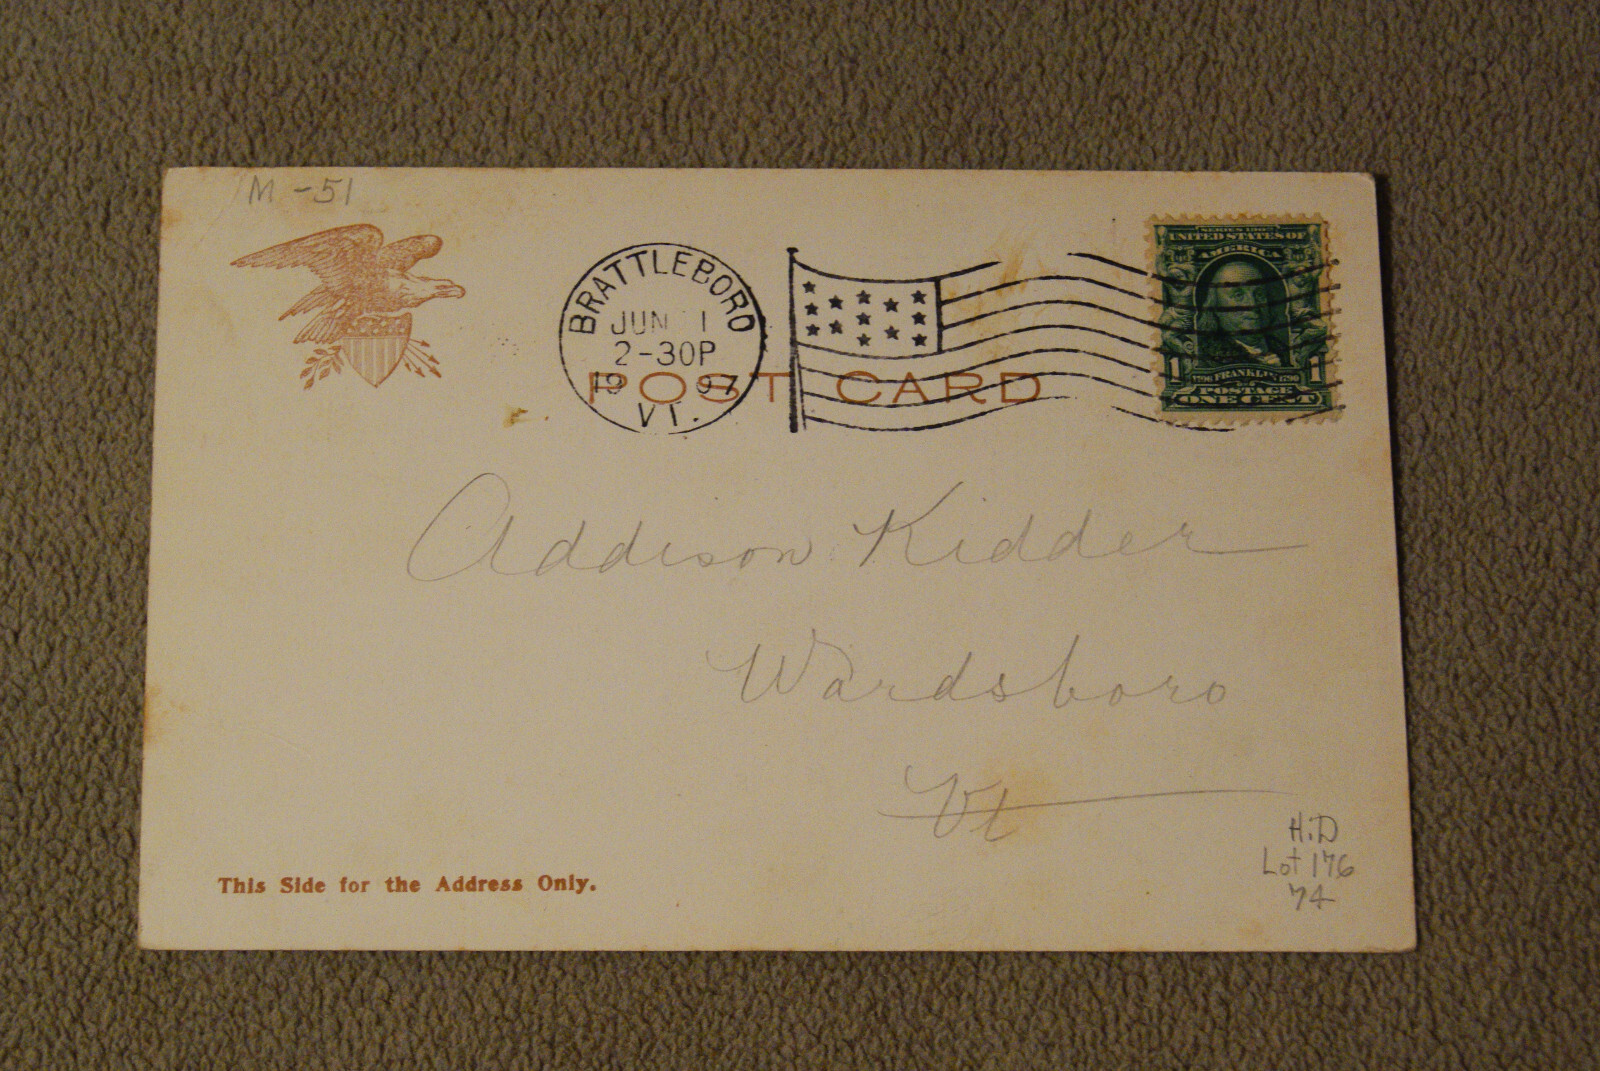 M-51
BRATTLEBORO
JUN 1
2-30P
19 07
VT.
POST CARD
SERIES 1902
UNITED STATES OF
AMERICA
1 1
1706 FRANKLIN 1790
POSTAGE
ONE CENT
Addison Kidder
Wardsboro
Vt
This Side for the Address Only.
H.D
Lot 176
74